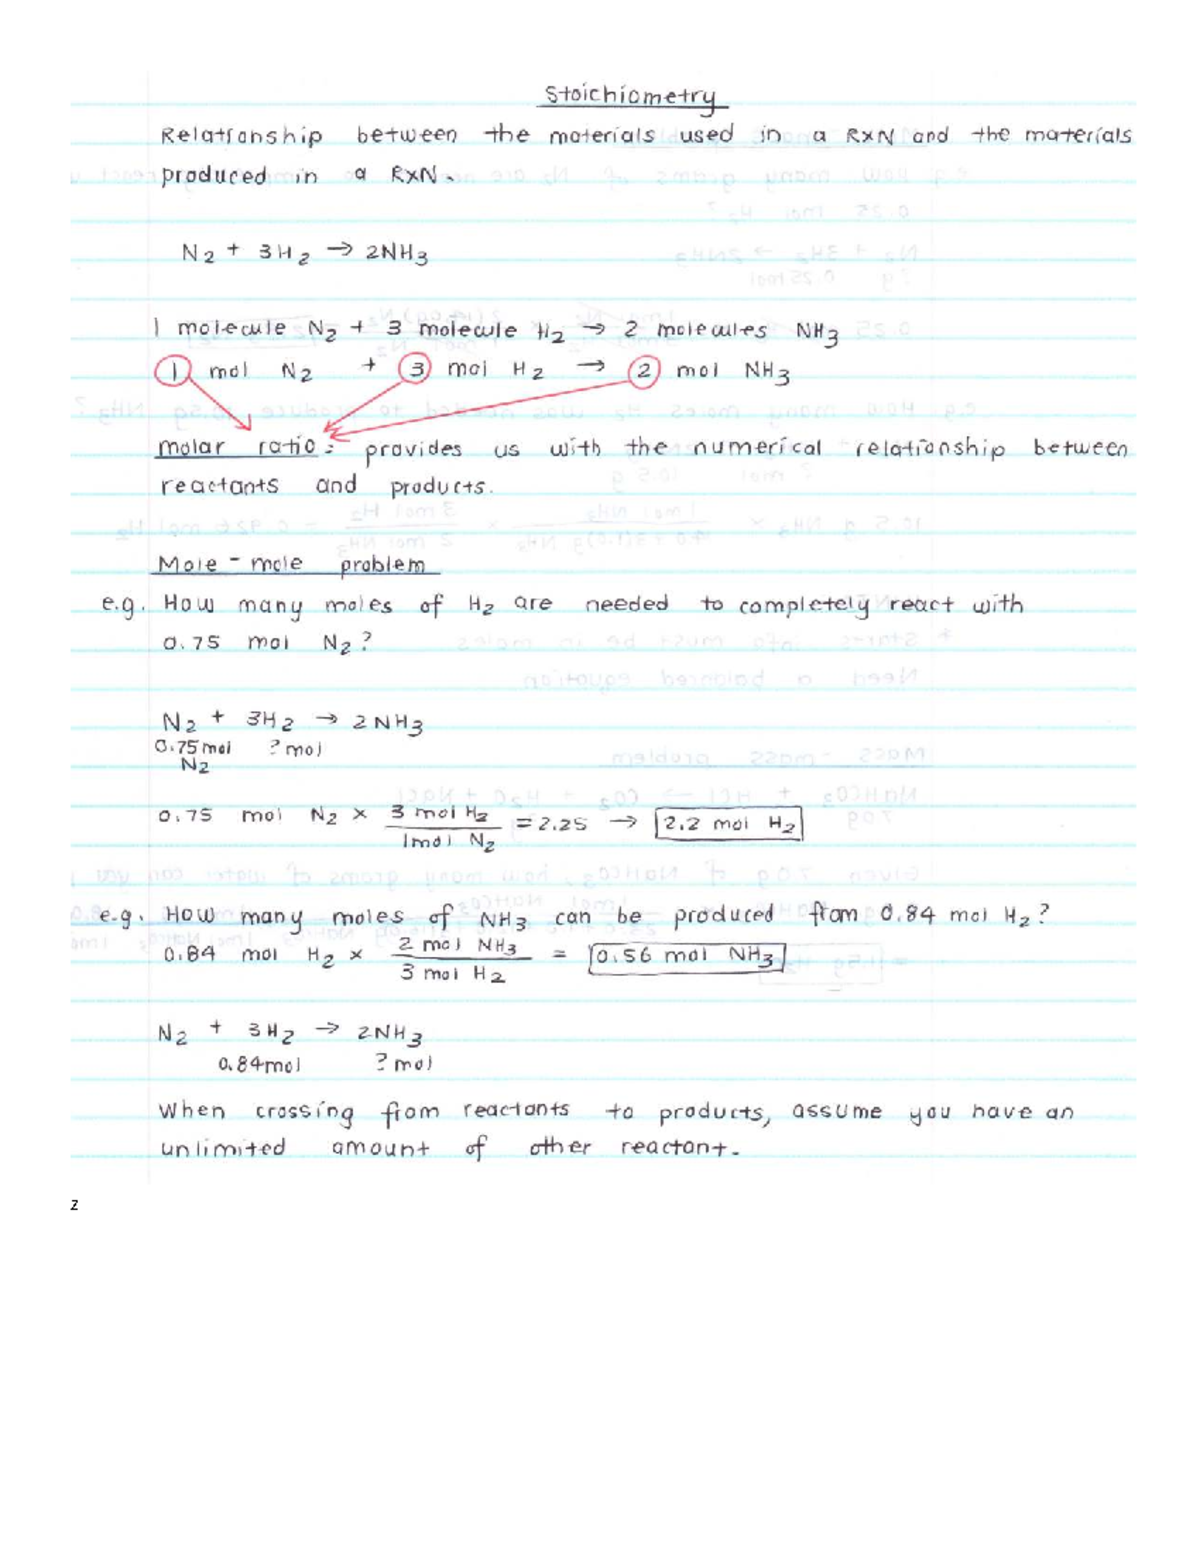 Stoichiometry
Relationship between the materials used in a RxN and the materials
produced in a RxN.
N2 + 3H2 → 2NH3
1 molecule N2 + 3 molecule H2 → 2 molecules NH3
1 mol N2 + 3 mol H2 → 2 mol NH3
molar ratio: provides us with the numerical relationship between
reactants and products.
Mole - mole problem
e.g. How many moles of H2 are needed to completely react with
0.75 mol N2?
N2 + 3H2 → 2NH3
0.75 mol ? mol
N2
0.75 mol N2 × 3 mol H2 / 1 mol N2 = 2.25 → 2.2 mol H2
e.g. How many moles of NH3 can be produced from 0.84 mol H2?
0.84 mol H2 × 2 mol NH3 / 3 mol H2 = 0.56 mol NH3
N2 + 3H2 → 2NH3
0.84 mol ? mol
When crossing from reactants to products, assume you have an
unlimited amount of other reactant.
z